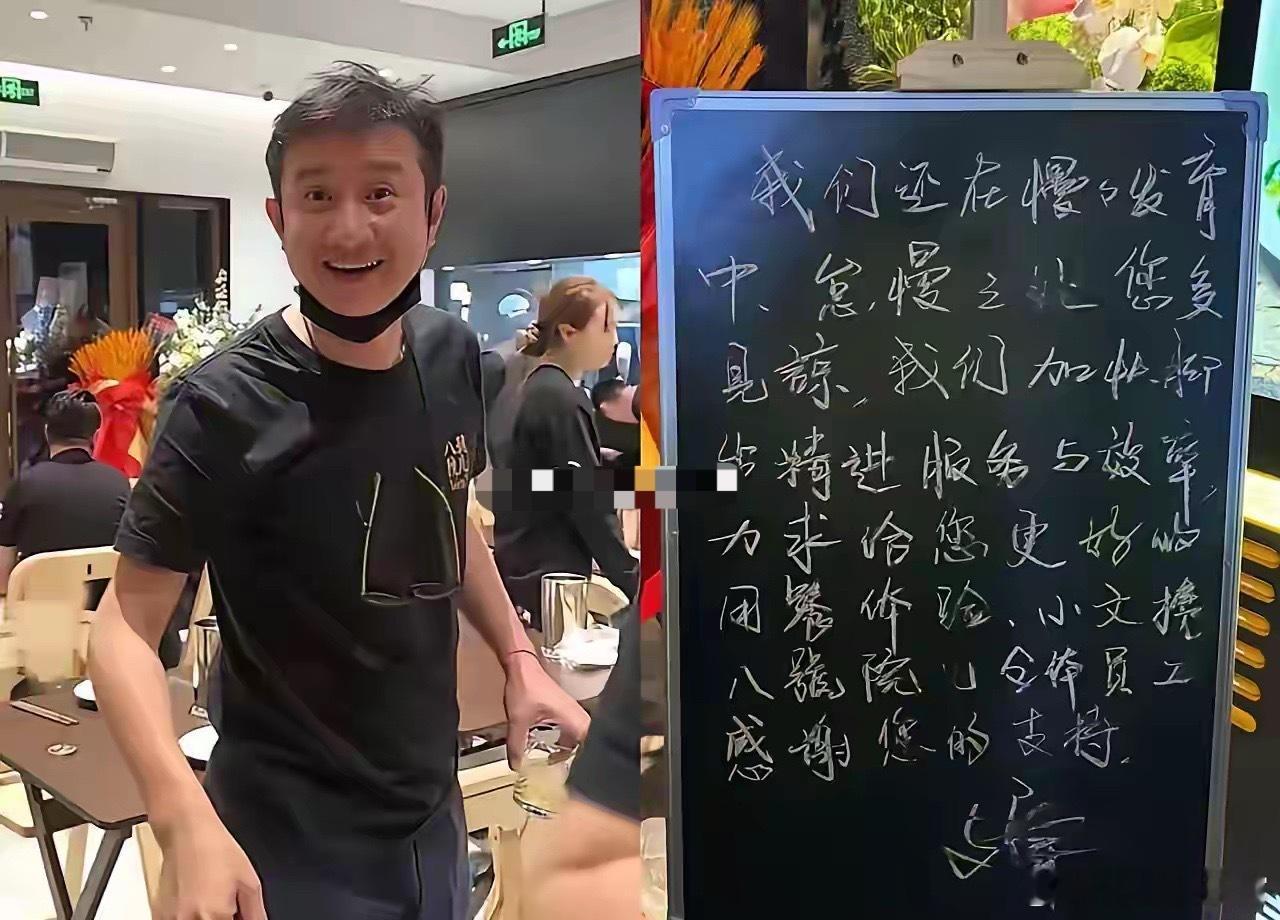 我们还在慢々发育
中、怠慢之处您多
见谅、我们加快脚
步精进服务与效率,
力求给您更好的
用餐体验、小文携
八號院儿全体员工
感谢您的支持.